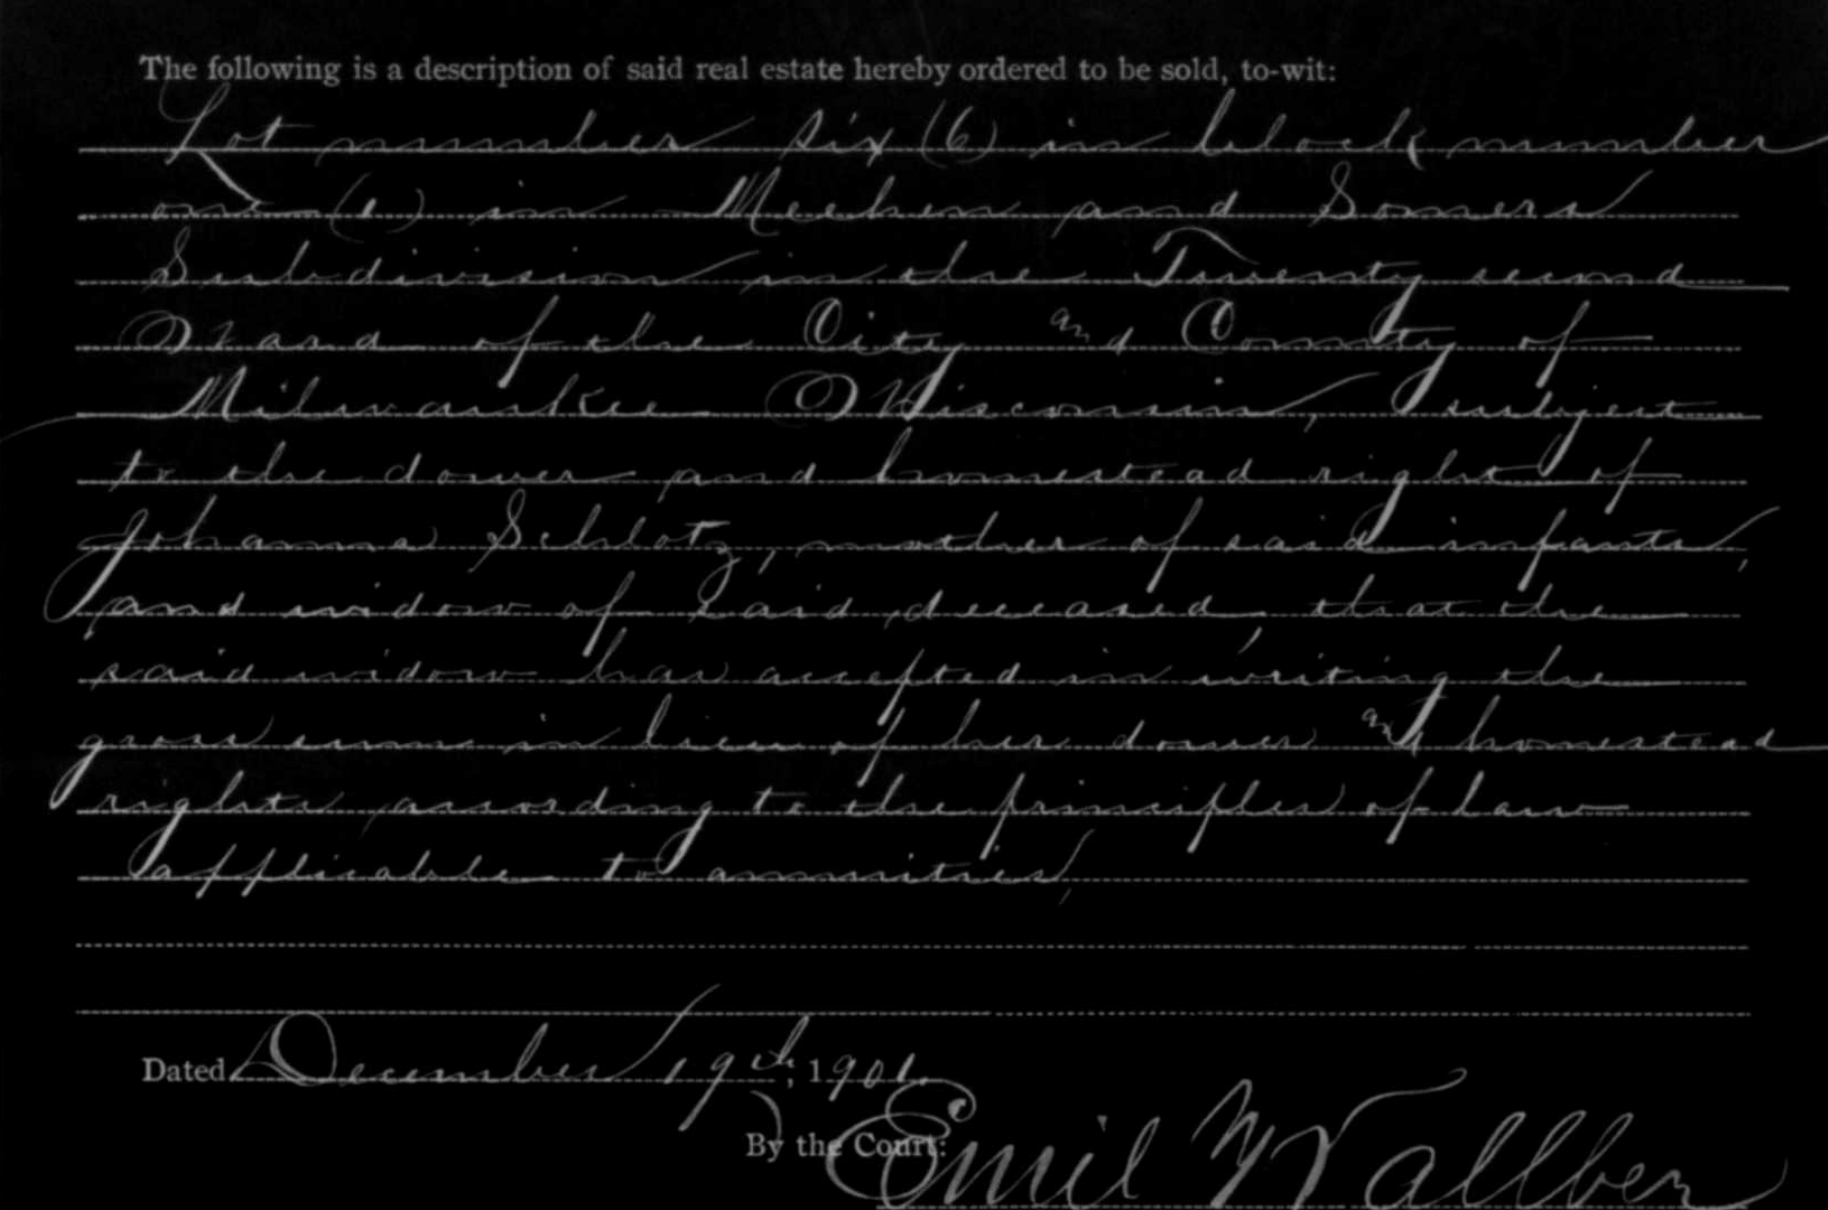 The following is a description of said real estate hereby ordered to be sold, to-wit:
Lot number six (6) in block number
one (1) in Meehen and Somers
Subdivision in the Twenty second
Ward of the City and County of
Milwaukee Wisconsin, subject
to the dower and homestead right of
Johanna Schlotz, mother of said infants,
and widow of said deceased, that the
said widow has accepted in writing the
gross sum in lieu of her dower and homestead
rights according to the principles of law
applicable to annuities,
Dated December 19th, 1901.
By the Court:
Emil Wallber